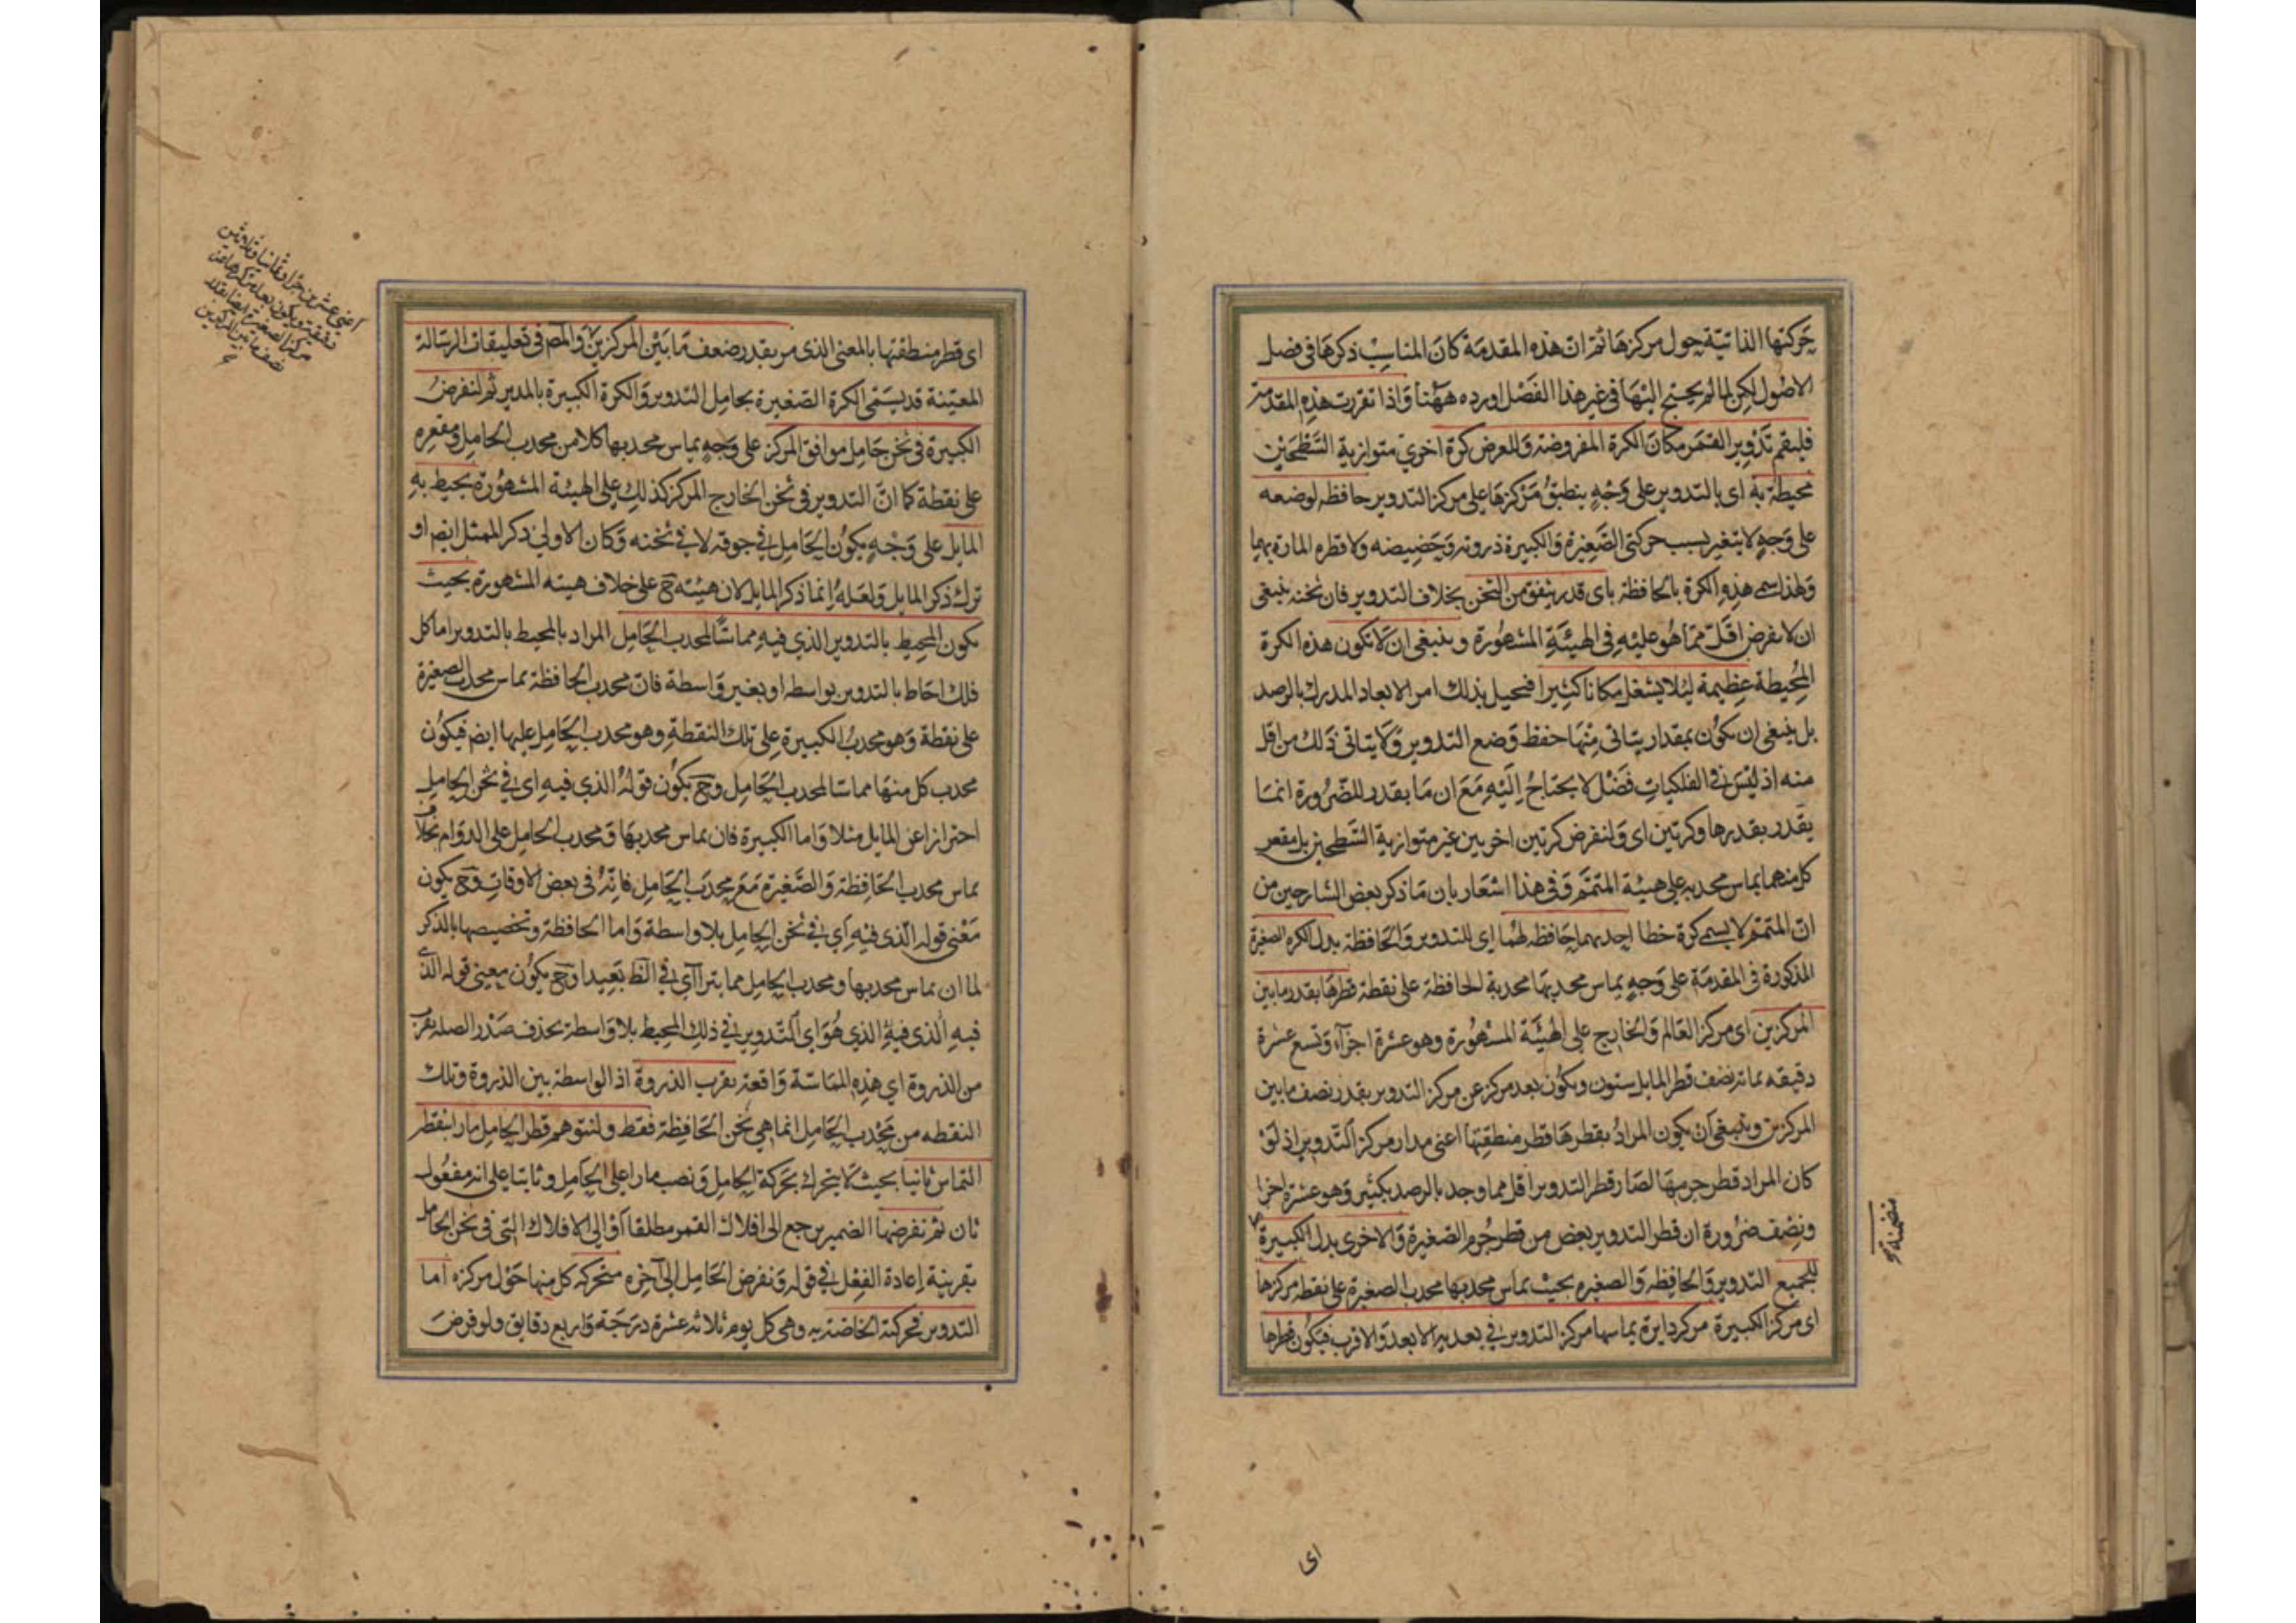 حركتها الذاتية حول مركزها ثم ان هذه المقدمة كان المناسب ذكرها فى فصل
الاصول لكن لما لم يحتج اليها فى غير هذا الفصل اورده ههنا واذا تقررت هذه المقدمة
فليقم تدوير القمر مكان الكرة المفروضة وللعرض كرة اخرى متوازية السطحين
محيطة به اى بالتدوير على وجه ينطبق مركزها على مركز التدوير حافظه لوضعه
على وجه لا يتغير بسبب حركتى الصغيرة والكبيرة ذروته وحضيضه ولا قطره المارة بهما
ولهذا سمى هذه الكرة بالحافظة باى قدر يتفق من الثخن بخلاف التدوير فان ثخنه ينبغى
ان لا يفرض اقل مما هو عليه فى الهيئة المشهورة وينبغى ان لا تكون هذه الكرة
المحيطة عظيمة لئلا يشغل مكانا كثيرا فيحيل بذلك امر الابعاد المدرك بالرصد
بل ينبغى ان يكون بمقدار يتاتى منها حفظ وضع التدوير ولا يتاتى ذلك من اقل
منه اذ ليس فى الفلكيات فضل لا يحتاج اليه مع ان ما يقدر للضرورة انما
يقدر بقدرها وكرتين اى ولنفرض كرتين اخريين غير متوازية السطحين بل مقعر
كل منهما يماس محدبه على هيئة المتمم وفى هذا اشعار بان ما ذكر بعض الشارحين من
ان المتمم لا يسمى كرة خطا احديهما حافظه لهما اى للتدوير والحافظة بدل الكره الصغيرة
المذكورة فى المقدمة على وجه يماس محدبها محدبة الحافظة على نقطة قطرها بقدر ما بين
المركزين اى مركز العالم والخارج على الهيئة المشهورة وهو عشرة اجزآء وتسع عشرة
دقيقه بما به نصف قطر المايل ستون ويكون بعد مركز عن مركز التدوير بقدر نصف ما بين
المركزين وينبغى ان يكون المراد بقطرها قطر منطقتها اعنى مدار مركز التدوير اذ لو
كان المراد قطر جرمها لصار قطر التدوير اقل مما وجد بالرصد بكثير وهو عشرة اجزا
ونصف ضرورة ان قطر التدوير بعض من قطر جرم الصغيرة والاخرى بدل الكبيرة
للجميع التدوير والحافظه والصغيره بحيث يماس محدبها محدب الصغيرة على نقطة مركزها
اى مركز الكبيرة مركز دايرة يماسها مركز التدوير فى بعديه الابعد والاقرب فيكون قطرها
اى
اى قطر منطقتها بالمعنى الذى مر بقدر ضعف ما بين المركزين والمص فى تعليقات الرسالة
المعينية قد يسمى الكرة الصغيرة بحامل التدوير والكرة الكبيرة بالمدير ثم لنفرض
الكبيرة فى ثخن حامل موافق المركز على وجه يماس محدبها كلا من محدب الحامل ومقعره
على نقطة كما ان التدوير فى ثخن الخارج المركز كذلك على الهيئة المشهورة يحيط به
المايل على وجه يكون الحامل فى جوفه لا فى ثخنه وكان الاولى ذكر الممثل ايضا او
ترك ذكر المايل ولعله انما ذكر المايل لان هيئته ح على خلاف هيئته المشهورة بحيث
يكون المحيط بالتدوير الذى فيه مماسا لمحدب الحامل المراد بالمحيط بالتدوير اما كل
فلك احاط بالتدوير بواسطه او بغير واسطة فان محدب الحافظة يماس محدب الصغيرة
على نقطة وهو محدب الكبيرة على تلك النقطة وهو محدب الحامل عليها ايضا فيكون
محدب كل منها مماسا لمحدب الحامل وح يكون قوله الذى فيه اى فى ثخن الحامل
احترازا عن المايل مثلا واما الكبيرة فان يماس محدبها ومحدب الحامل على الدوام بخلاف
تماس محدب الحافظة والصغيرة مع محدب الحامل فانه فى بعض الاوقات وح يكون
معنى قوله الذى فيه اى فى ثخن الحامل بلا واسطة واما الحافظة وتخصيصها بالذكر
لما ان تماس محدبها ومحدب الحامل مما يتراآى فى الظ بعيدا وح يكون معنى قوله الذى
فيه الذى فيه الذى هو اى التدوير فى ذلك المحيط بلا واسطة بحذف صدر الصله بقرب
من الذروة اى هذه المماسة واقعة بقرب الذروة اذ الواسطة بين الذروة وتلك
النقطه من محدب الحامل انما هى ثخن الحافظة فقط ولنتوهم قطر الحامل مارا بنقطة
التماس ثانيا بحيث لا يتحرك بحركة الحامل ونصب مارا على الحامل وثابتا على انه مفعول
ثان ثم نفرضها الضمير يرجع الى افلاك القمر مطلقا او الى الافلاك التى فى ثخن الحامل
بقرينة اعادة الفعل فى قوله ونفرض الحامل الى آخره متحركه كل منها حول مركزه اما
التدوير فحركته الخاصة به وهى كل يوم ثلاثه عشرة درجة واربع دقايق ولو فرض
اعنى عشرين جزا وثمانيا وثلاثين
دقيقة ويكون بعد مركزها عن
مركز الصغيرة ايضا بقدر
نصف ما بين المركزين